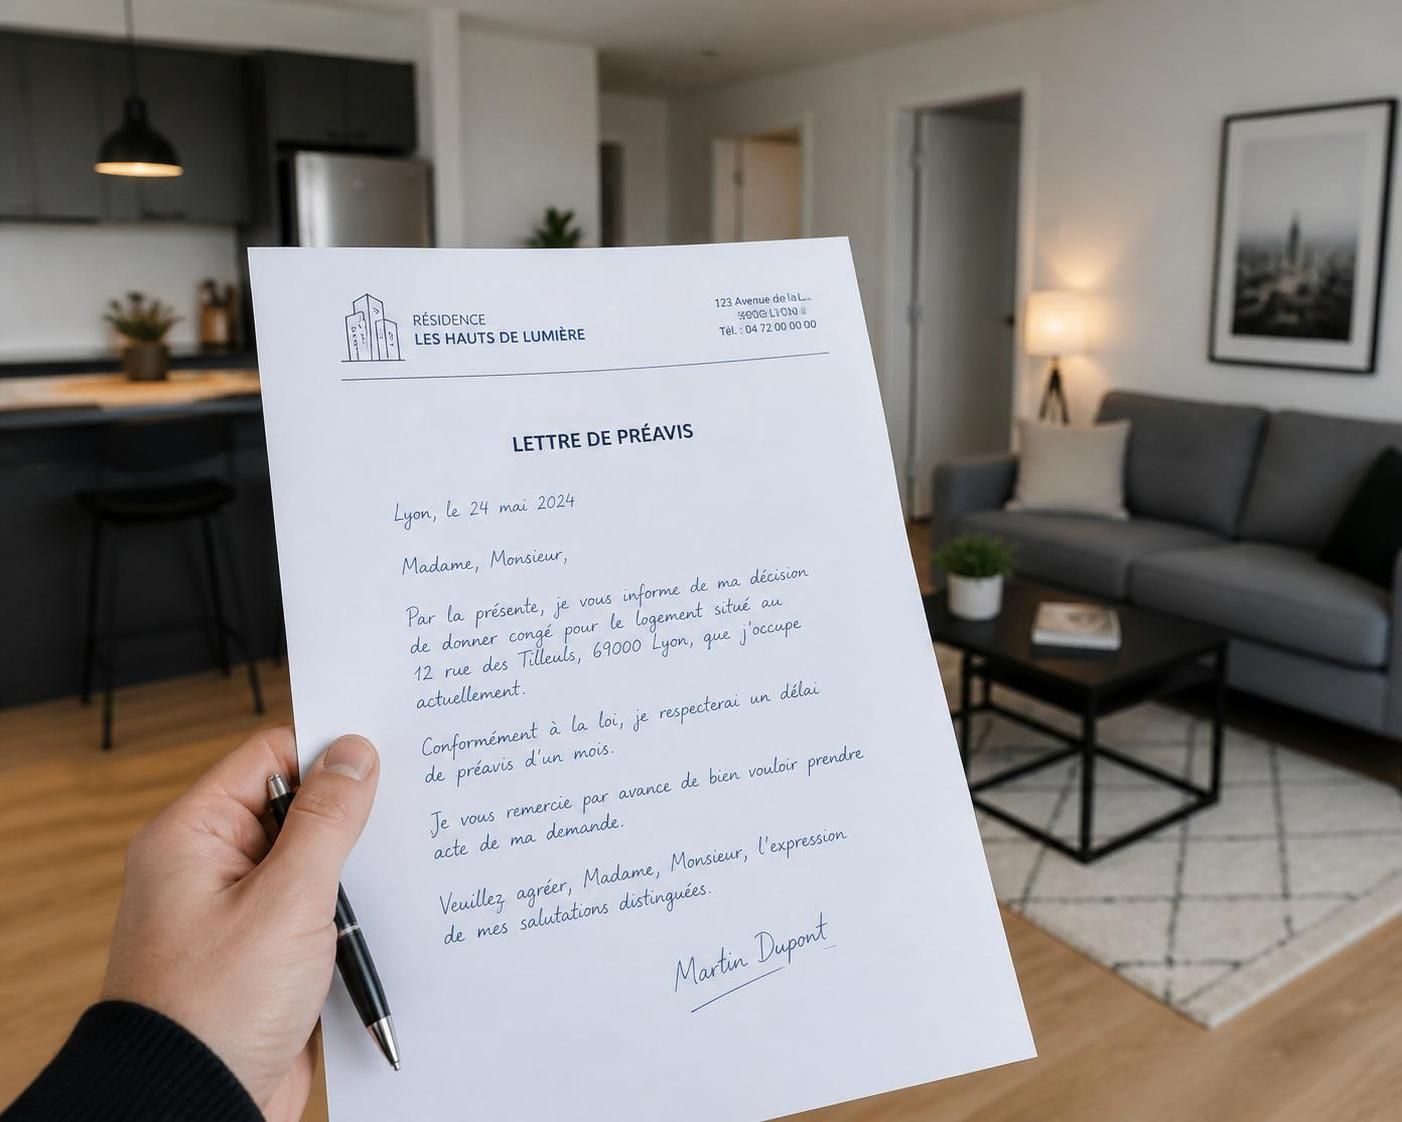 RÉSIDENCE
LES HAUTS DE LUMIÈRE
123 Avenue de la L...
Tél. : 04 72 00 00 00
LETTRE DE PRÉAVIS
Lyon, le 24 mai 2024
Madame, Monsieur,
Par la présente, je vous informe de ma décision
de donner congé pour le logement situé au
12 rue des Tilleuls, 69000 Lyon, que j'occupe
actuellement.
Conformément à la loi, je respecterai un délai
de préavis d'un mois.
Je vous remercie par avance de bien vouloir prendre
acte de ma demande.
Veuillez agréer, Madame, Monsieur, l'expression
de mes salutations distinguées.
Martin Dupont